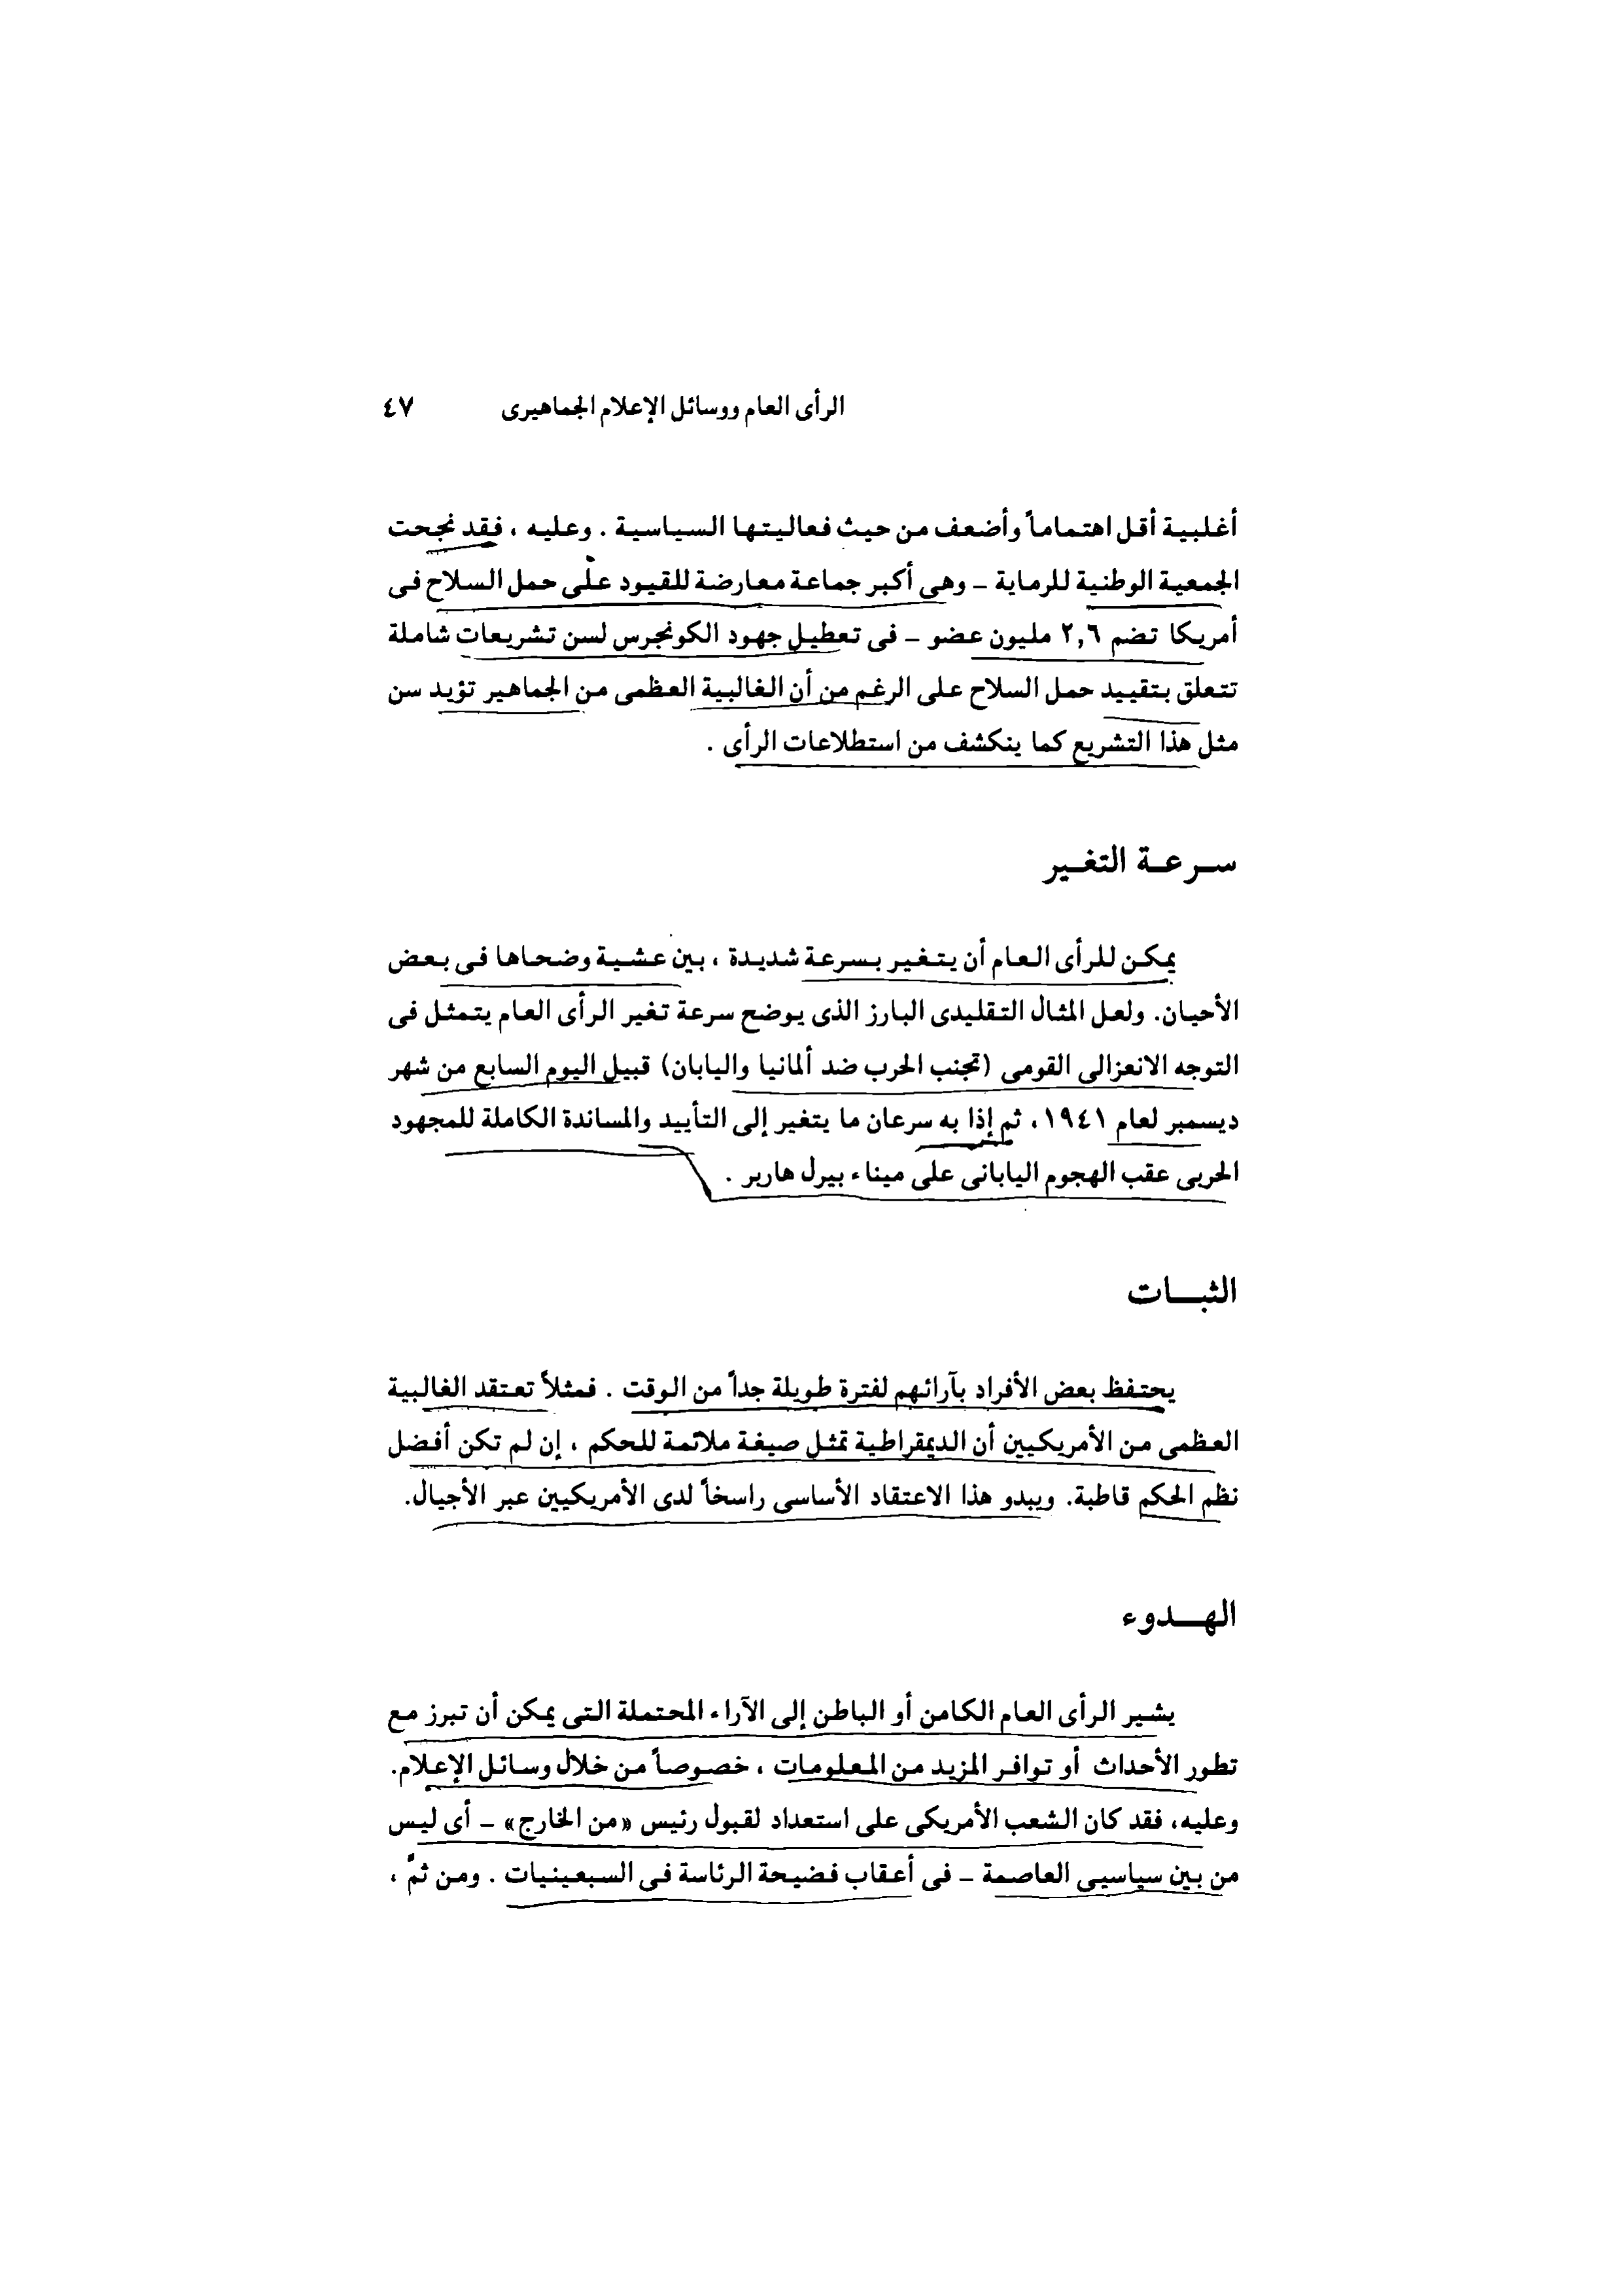 الرأى العام ووسائل الإعلام الجماهيرى ٤٧
أغلبية أقل اهتماماً وأضعف من حيث فعاليتها السياسية . وعليه ، فقد نجحت
الجمعية الوطنية للرماية – وهى أكبر جماعة معارضة للقيود على حمل السلاح فى
أمريكا تضم ٢,٦ مليون عضو – فى تعطيل جهود الكونجرس لسن تشريعات شاملة
تتعلق بتقييد حمل السلاح على الرغم من أن الغالبية العظمى من الجماهير تؤيد سن
مثل هذا التشريع كما ينكشف من استطلاعات الرأى .
سرعة التغير
يمكن للرأى العام أن يتغير بسرعة شديدة ، بين عشية وضحاها فى بعض
الأحيان. ولعل المثال التقليدى البارز الذى يوضح سرعة تغير الرأى العام يتمثل فى
التوجه الانعزالى القومى (تجنب الحرب ضد ألمانيا واليابان) قبيل اليوم السابع من شهر
ديسمبر لعام ١٩٤١، ثم إذا به سرعان ما يتغير إلى التأييد والمساندة الكاملة للمجهود
الحربى عقب الهجوم اليابانى على ميناء بيرل هاربر .
الثبات
يحتفظ بعض الأفراد بآرائهم لفترة طويلة جداً من الوقت . فمثلاً تعتقد الغالبية
العظمى من الأمريكيين أن الديمقراطية تمثل صيغة ملائمة للحكم ، إن لم تكن أفضل
نظم الحكم قاطبة. ويبدو هذا الاعتقاد الأساسى راسخاً لدى الأمريكيين عبر الأجيال.
الهدوء
يشير الرأى العام الكامن أو الباطن إلى الآراء المحتملة التى يمكن أن تبرز مع
تطور الأحداث أو توافر المزيد من المعلومات ، خصوصاً من خلال وسائل الإعلام.
وعليه، فقد كان الشعب الأمريكى على استعداد لقبول رئيس «من الخارج» – أى ليس
من بين سياسيى العاصمة – فى أعقاب فضيحة الرئاسة فى السبعينيات . ومن ثمَّ ،